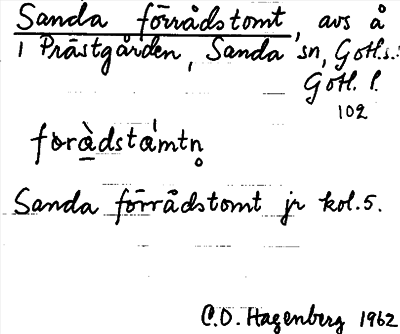 Sanda förrådstomt, avs å
1 Prästgården, Sanda sn, Gotl.s.:
Gotl. l.
102
foràdstámtn̥
Sanda förrådstomt jr kol.5.
C.D. Hagenberg 1962